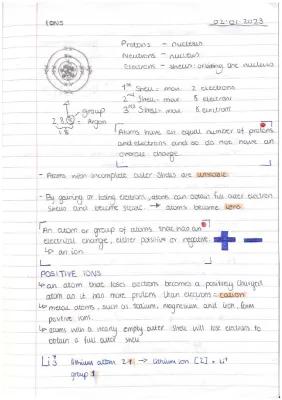 IONS
02.01.2023
Protons - nucleus
Neutrons - nucleus
Electrons - shells orbiting the nucleus
1st Shell - max 2 electrons
2nd Shell - max 8 electrons
3rd Shell - max 8 electrons
group
2 8 8 = Argon
18
Atoms have an equal number of protons
and electrons and so do not have an
overall charge
- Atoms with incomplete outer shells are unstable
- By gaining or losing electrons, atoms can obtain full outer electron
shells and become stable. → atoms become ions
An atom or group of atoms that has an
electrical charge, either positive or negative.
↳ an ion
+ −
POSITIVE IONS
↳ an atom that loses electrons becomes a positively charged
atom as it has more protons than electrons = cation
↳ metal atoms, such as sodium, magnesium and iron, form
positive ions.
↳ atoms with a nearly empty outer shell will lose electrons to
obtain a full outer shell
Li 3 lithium atom 2,1 → lithium ion [2]+ = Li+
group 1